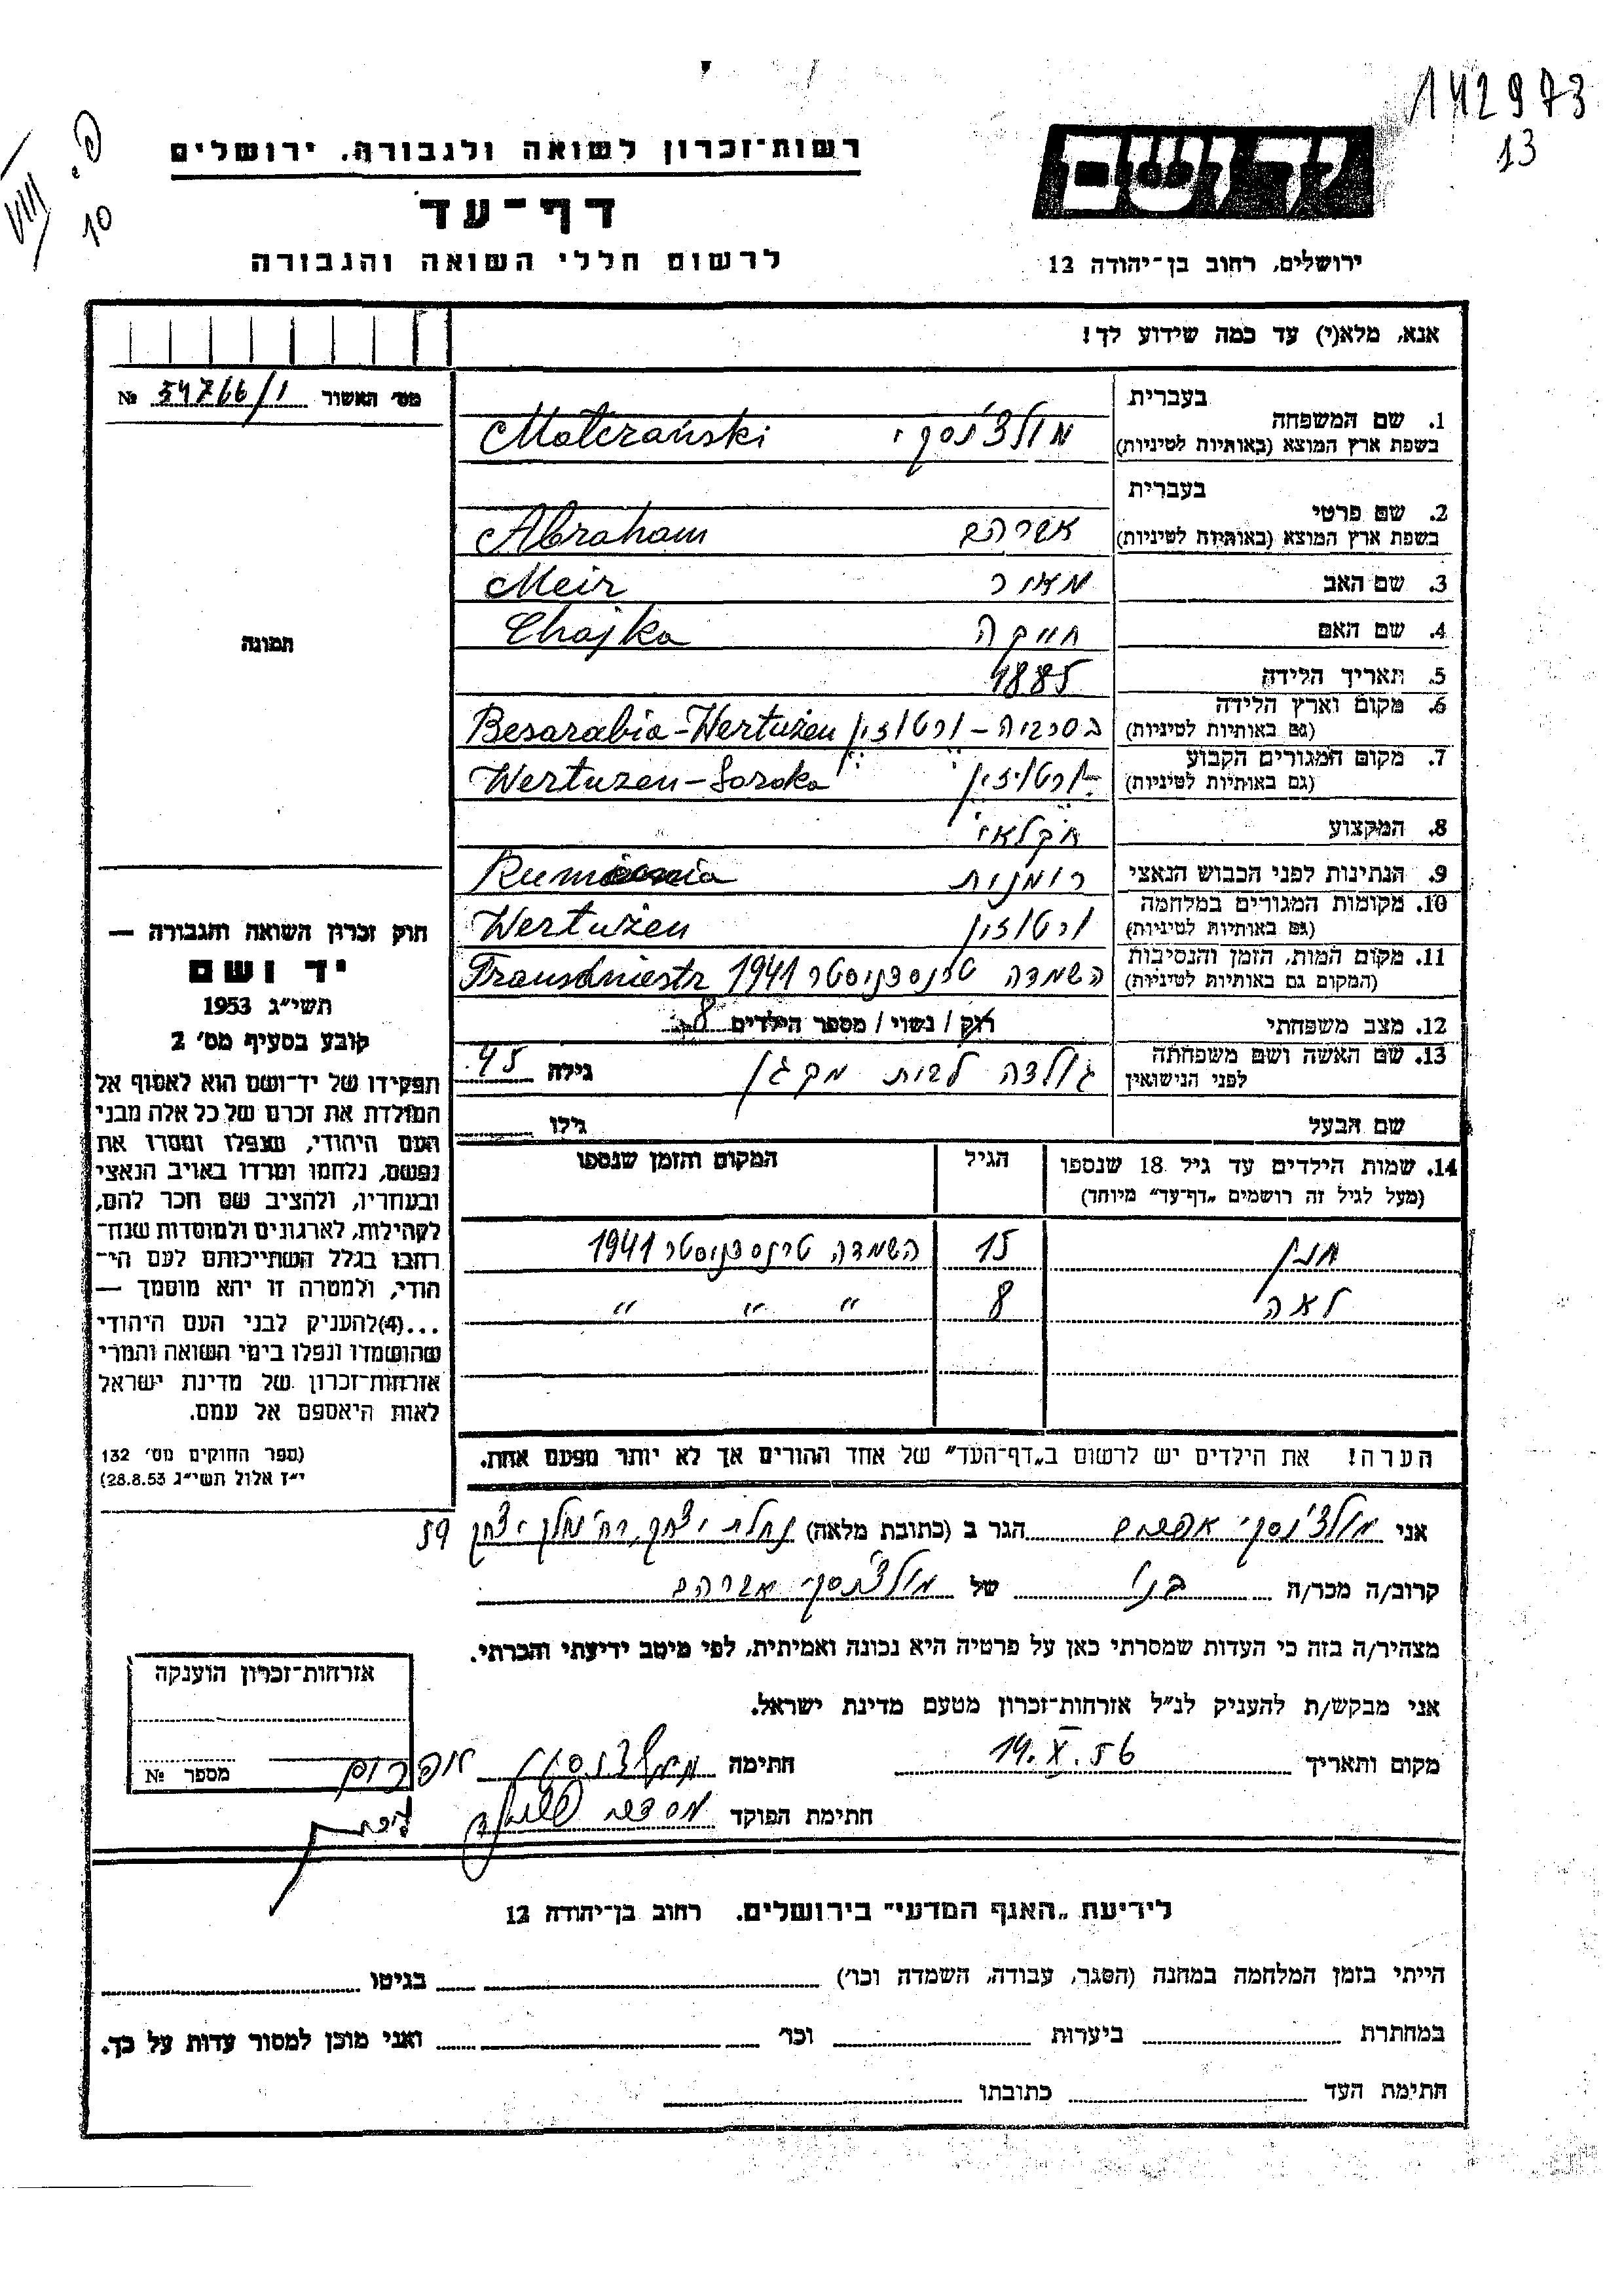 142973
13
פ. 10
VIII
יד ושם
ירושלים, רחוב בן־יהודה 12
רשות־זכרון לשואה ולגבורה, ירושלים
דף־עד
לרשום חללי השואה והגבורה
אנא, מלא(י) עד כמה שידוע לך!
מס׳ האשור 54766/1 №
תמונה
חוק זכרון השואה והגבורה —
יד ושם
תשי״ג 1953
קובע בסעיף מס׳ 2
תפקידו של יד־ושם הוא לאסוף אל
המולדת את זכרם של כל אלה מבני
העם היהודי, שנפלו ומסרו את
נפשם, נלחמו ומרדו באויב הנאצי
ובעוזריו, ולהציב שם וזכר להם,
לקהילות, לארגונים ולמוסדות שנח־
רבו בגלל השתייכותם לעם הי־
הודי, ולמטרה זו יהא מוסמך —
...(4)להעניק לבני העם היהודי
שהושמדו ונפלו בימי השואה והמרי
אזרחות־זכרון של מדינת ישראל
לאות היאספם אל עמם.
(ספר החוקים מס׳ 132
י״ז אלול תשי״ג 28.8.53)
בעברית
1. שם המשפחה
בשפת ארץ המוצא (באותיות לטיניות)
מולצ׳נסקי Molczański
בעברית
2. שם פרטי
בשפת ארץ המוצא (באותיות לטיניות)
אברהם Abraham
3. שם האב מאיר Meir
4. שם האם חייקה Chajka
5. תאריך הלידה 1885
6. מקום וארץ הלידה
(גם באותיות לטיניות)
בסרביה – ורטוז׳ין Besarabia-Wertużen
7. מקום המגורים הקבוע
(גם באותיות לטיניות)
ורטוז׳ין Wertuzen-Soroka
8. המקצוע חקלאי
9. הנתינות לפני הכבוש הנאצי רומנית
10. מקומות המגורים במלחמה
(גם באותיות לטיניות)
ורטוז׳ין Wertużen
11. מקום המות, הזמן והנסיבות
(המקום גם באותיות לטיניות)
השמדה טרנסדניסטר 1941 Transdniestr
12. מצב משפחתי רוק / נשוי / מספר הילדים 8
13. שם האשה ושם משפחתה
לפני הנישואין
גולדה לבית גילה 45
שם הבעל גילו
14. שמות הילדים עד גיל 18 שנספו
(מעל לגיל זה רושמים „דף־עד״ מיוחד)
הגיל
המקום והזמן שנספו
חנן 15 השמדה טרנסדניסטר 1941
לאה 8 " " "
הערה! את הילדים יש לרשום ב„דף־העד״ של אחד ההורים אך לא יותר מפעם אחת.
אני מולצ׳נסקי אפרים הגר ב (כתובת מלאה) נחלת יצחק, רח׳ נחלת יצחק 59
קרוב/ה מכר/ה בנו של מולצ׳נסקי אברהם
מצהיר/ה בזה כי העדות שמסרתי כאן על פרטיה היא נכונה ואמיתית, לפי מיטב ידיעתי והכרתי.
אני מבקש/ת להעניק לנ״ל אזרחות־זכרון מטעם מדינת ישראל.
מקום ותאריך 14.X.56 חתימה מולצ׳נסקי אפרים
חתימת הפוקד
אזרחות־זכרון הוענקה
מספר №
לידיעת „האגף המדעי״ בירושלים, רחוב בן־יהודה 12
הייתי בזמן המלחמה במחנה (הסגר, עבודה, השמדה וכו׳) בגיטו
במחתרת ביערות וכו׳ ואני מוכן למסור עדות על כך.
חתימת העד כתובתו